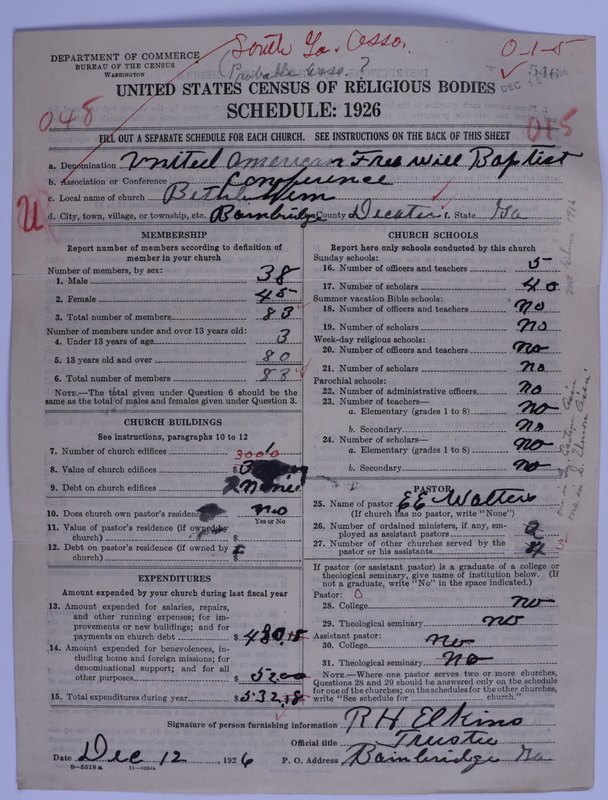 South Ga. Asso.
(Probable Asso.?)
0-1-5
DEPARTMENT OF COMMERCE
BUREAU OF THE CENSUS
WASHINGTON
546
DEC 15
UNITED STATES CENSUS OF RELIGIOUS BODIES
SCHEDULE: 1926
048
015
FILL OUT A SEPARATE SCHEDULE FOR EACH CHURCH. SEE INSTRUCTIONS ON THE BACK OF THIS SHEET
a. Denomination United American Free will Baptist
b. Association or Conference Conference
c. Local name of church Bethlehem
U
d. City, town, village, or township, etc. Bainbridge County Decatur f. State Ga
MEMBERSHIP
Report number of members according to definition of
member in your church
Number of members, by sex:
1. Male 38
2. Female 45
3. Total number of members 83
Number of members under and over 13 years old:
4. Under 13 years of age 3
5. 13 years old and over 80
6. Total number of members 83
NOTE.—The total given under Question 6 should be
same as the total of males and females given under Question 3.
CHURCH BUILDINGS
See instructions, paragraphs 10 to 12
7. Number of church edifices 1
3000
8. Value of church edifices $
9. Debt on church edifices none
10. Does church own pastor's residence no
Yes or No
11. Value of pastor's residence (if owned by
church) $
12. Debt on pastor's residence (if owned by
church) $
EXPENDITURES
Amount expended by your church during last fiscal year
13. Amount expended for salaries, repairs,
and other running expenses; for im-
provements or new buildings; and for
payments on church debt $ 480.18
14. Amount expended for benevolences, in-
cluding home and foreign missions; for
denominational support; and for all
other purposes $ 52.00
15. Total expenditures during year $ 532.18
CHURCH SCHOOLS
Report here only schools conducted by this church
Sunday schools:
16. Number of officers and teachers 5
17. Number of scholars 40
Summer vacation Bible schools:
18. Number of officers and teachers no
19. Number of scholars no
Week-day religious schools:
20. Number of officers and teachers no
21. Number of scholars no
Parochial schools:
22. Number of administrative officers no
23. Number of teachers—
a. Elementary (grades 1 to 8) no
b. Secondary no
24. Number of scholars—
a. Elementary (grades 1 to 8) no
b. Secondary no
PASTOR
25. Name of pastor EE Walters
(If church has no pastor, write "None")
26. Number of ordained ministers, if any, em-
ployed as assistant pastors
27. Number of other churches served by the
pastor or his assistants 3
If pastor (or assistant pastor) is a graduate of a college or
theological seminary, give name of institution below. (If
not a graduate, write "No" in the space indicated.)
Pastor: 0
28. College no
29. Theological seminary no
Assistant pastor:
30. College no
31. Theological seminary No
NOTE.—Where one pastor serves two or more churches,
Questions 28 and 29 should be answered only on the schedule
for one of the churches; on the schedules for the other churches,
write "See schedule for church."
Signature of person furnishing information R H Elkins
Official title Trustee
Date Dec 12, 1926 P. O. Address Bainbridge Ga
8-5518a